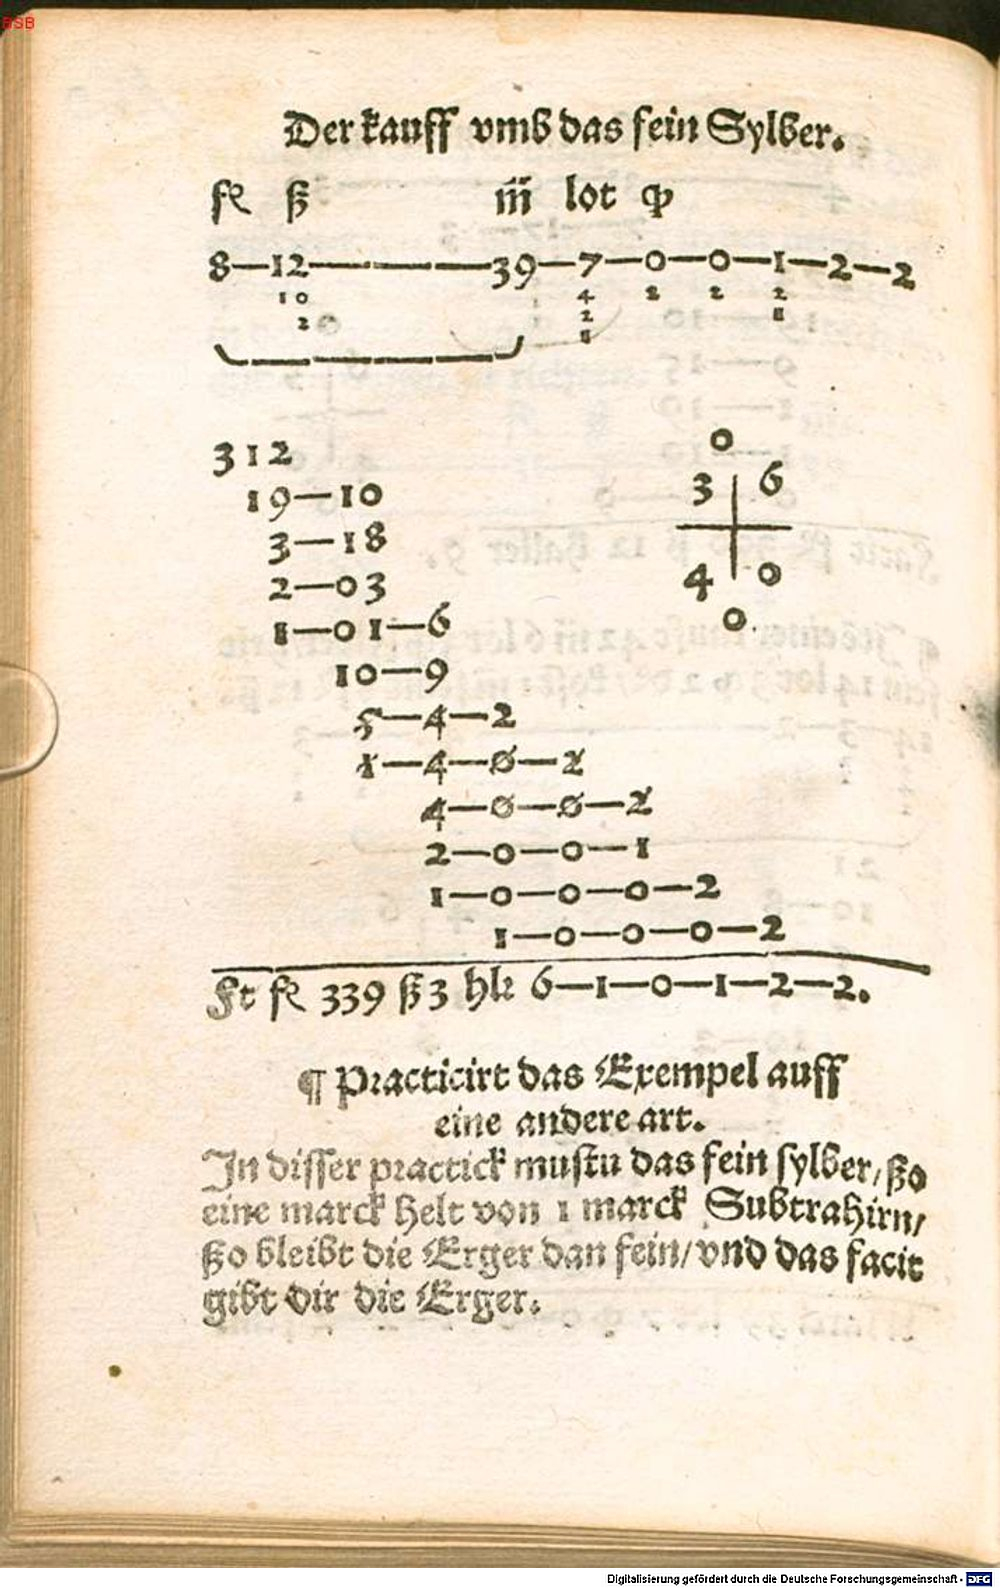 BSB
Der kauff vmb das fein Sylber.
fl ß m̃ lot qͦ
8—12———39—7—0—0—1—2—2
10 4 2 2 2
2 2 1
1
312
19—10
3—18
2—03
1—01—6
10—9
5—4—2
1—4—0—2
4—0—0—2
2—0—0—1
1—0—0—0—2
1—0—0—0—2
0
3 6
4 0
0
Ft fl 339 ß 3 hlr 6—1—0—1—2—2.
¶ Practicirt das Exempel auff
eine andere art.
In disser practick mustu das fein sylber/ ßo
eine marck helt von 1 marck Subtrahirn/
ßo bleibt die Erger dan fein/ vnd das facit
gibt dir die Erger.
Digitalisierung gefördert durch die Deutsche Forschungsgemeinschaft - DFG